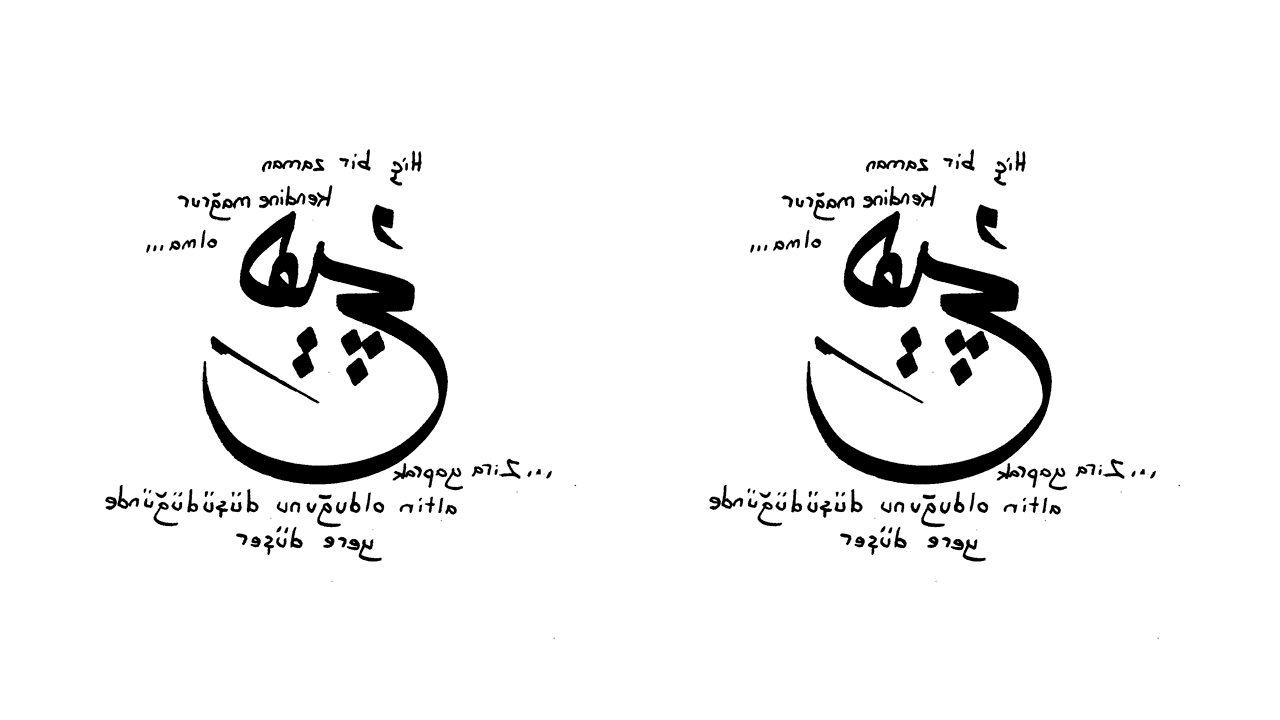 Hiç bir zaman
kendine mağrur
olma...
هيچ
...Zira yaprak
altin olduğunu düşüdüğünde
yere düşer
Hiç bir zaman
kendine mağrur
olma...
هيچ
...Zira yaprak
altin olduğunu düşüdüğünde
yere düşer